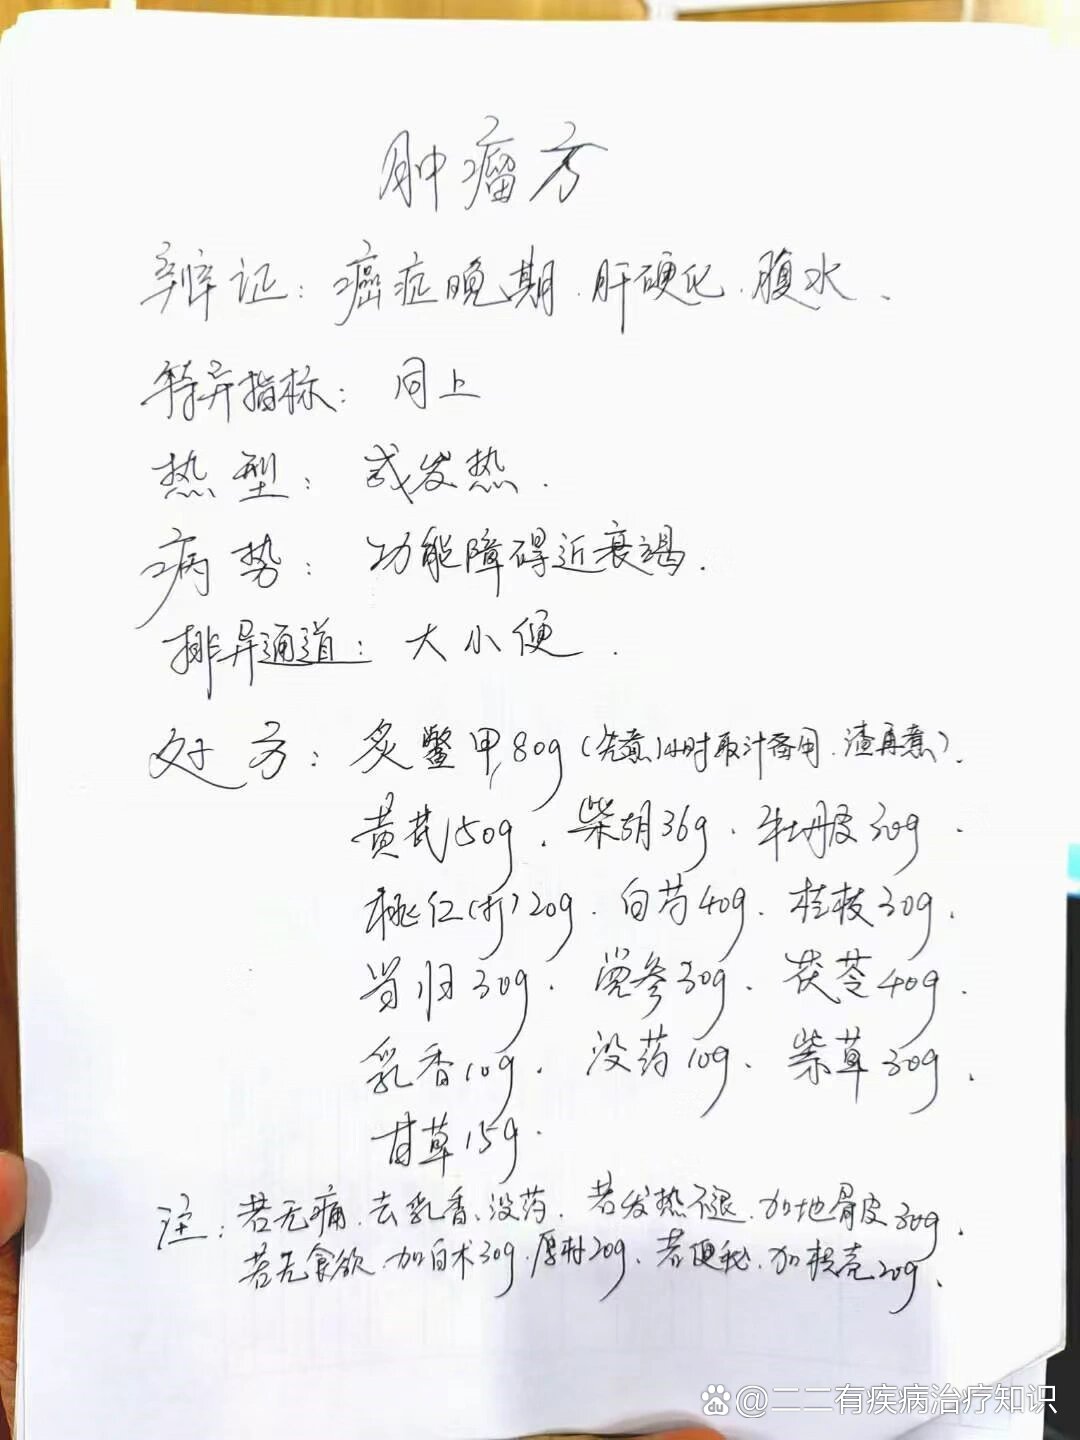 肿瘤方
辨证：癌症晚期．肝硬化．腹水．
特异指标：同上
热型：或发热．
病势：功能障碍近衰竭．
排异通道：大小便．
处方：炙鳖甲80g（先煮1小时取汁备用．渣再煮）．
黄芪150g．柴胡36g．牡丹皮30g．
桃仁(打)20g．白芍40g．桂枝30g．
当归30g．党参30g．茯苓40g．
乳香10g．没药10g．紫草30g．
甘草15g．
注：若无痛．去乳香、没药．若发热不退．加地骨皮30g．
若无食欲．加白术30g．厚朴20g．若便秘．加枳壳20g．
@二二有疾病治疗知识